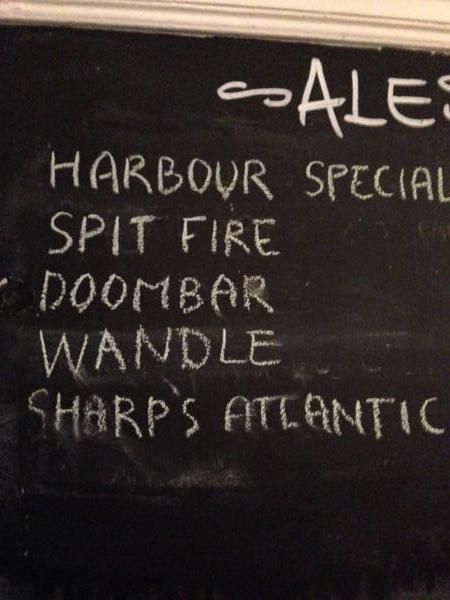 ALES
HARBOUR SPECIAL
SPIT FIRE
DOOMBAR
WANDLE
SHARPS ATLANTIC